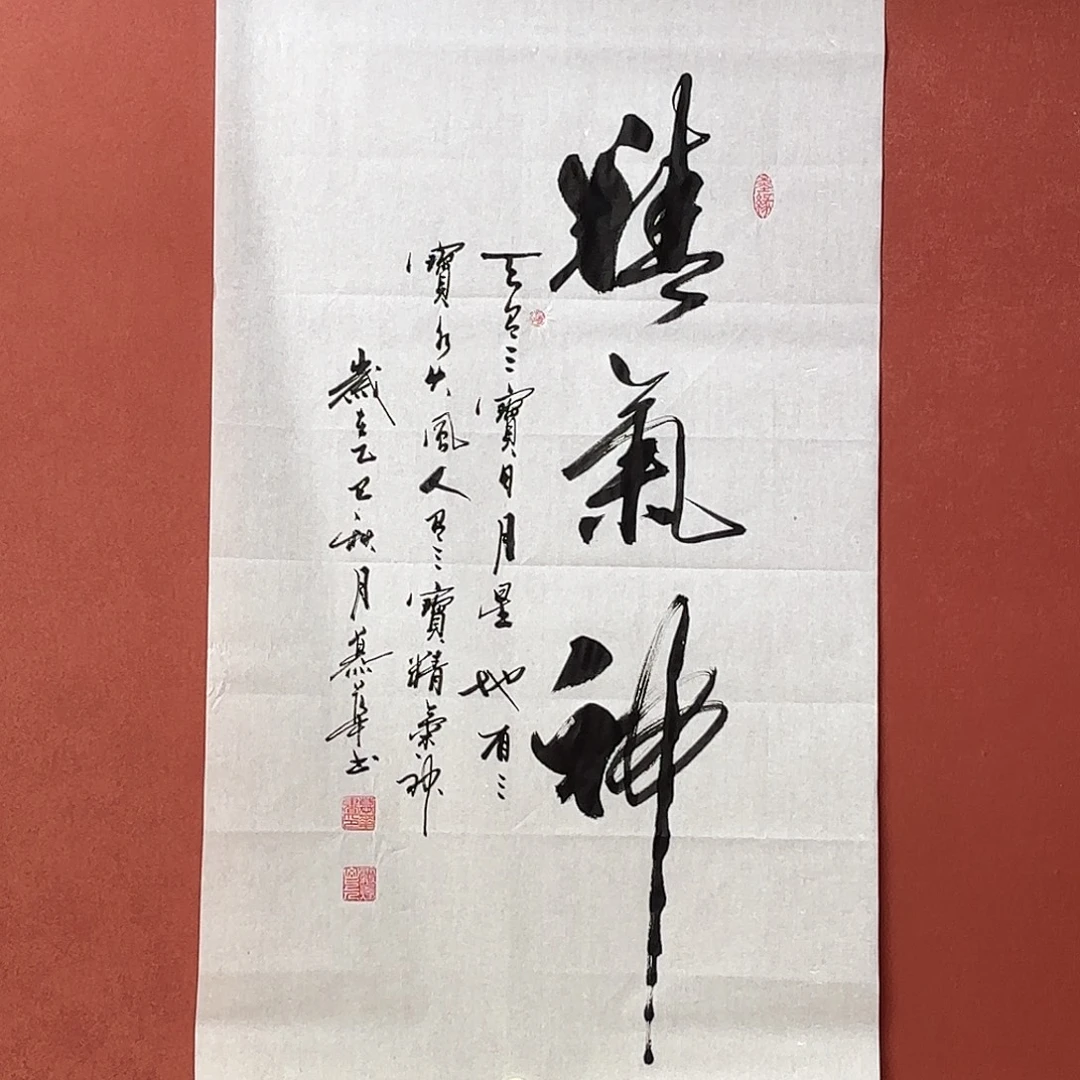 精氣神
天有三寶日月星地有三
寶水火風人有三寶精氣神
歲在乙巳秋月慕華书
墨緣